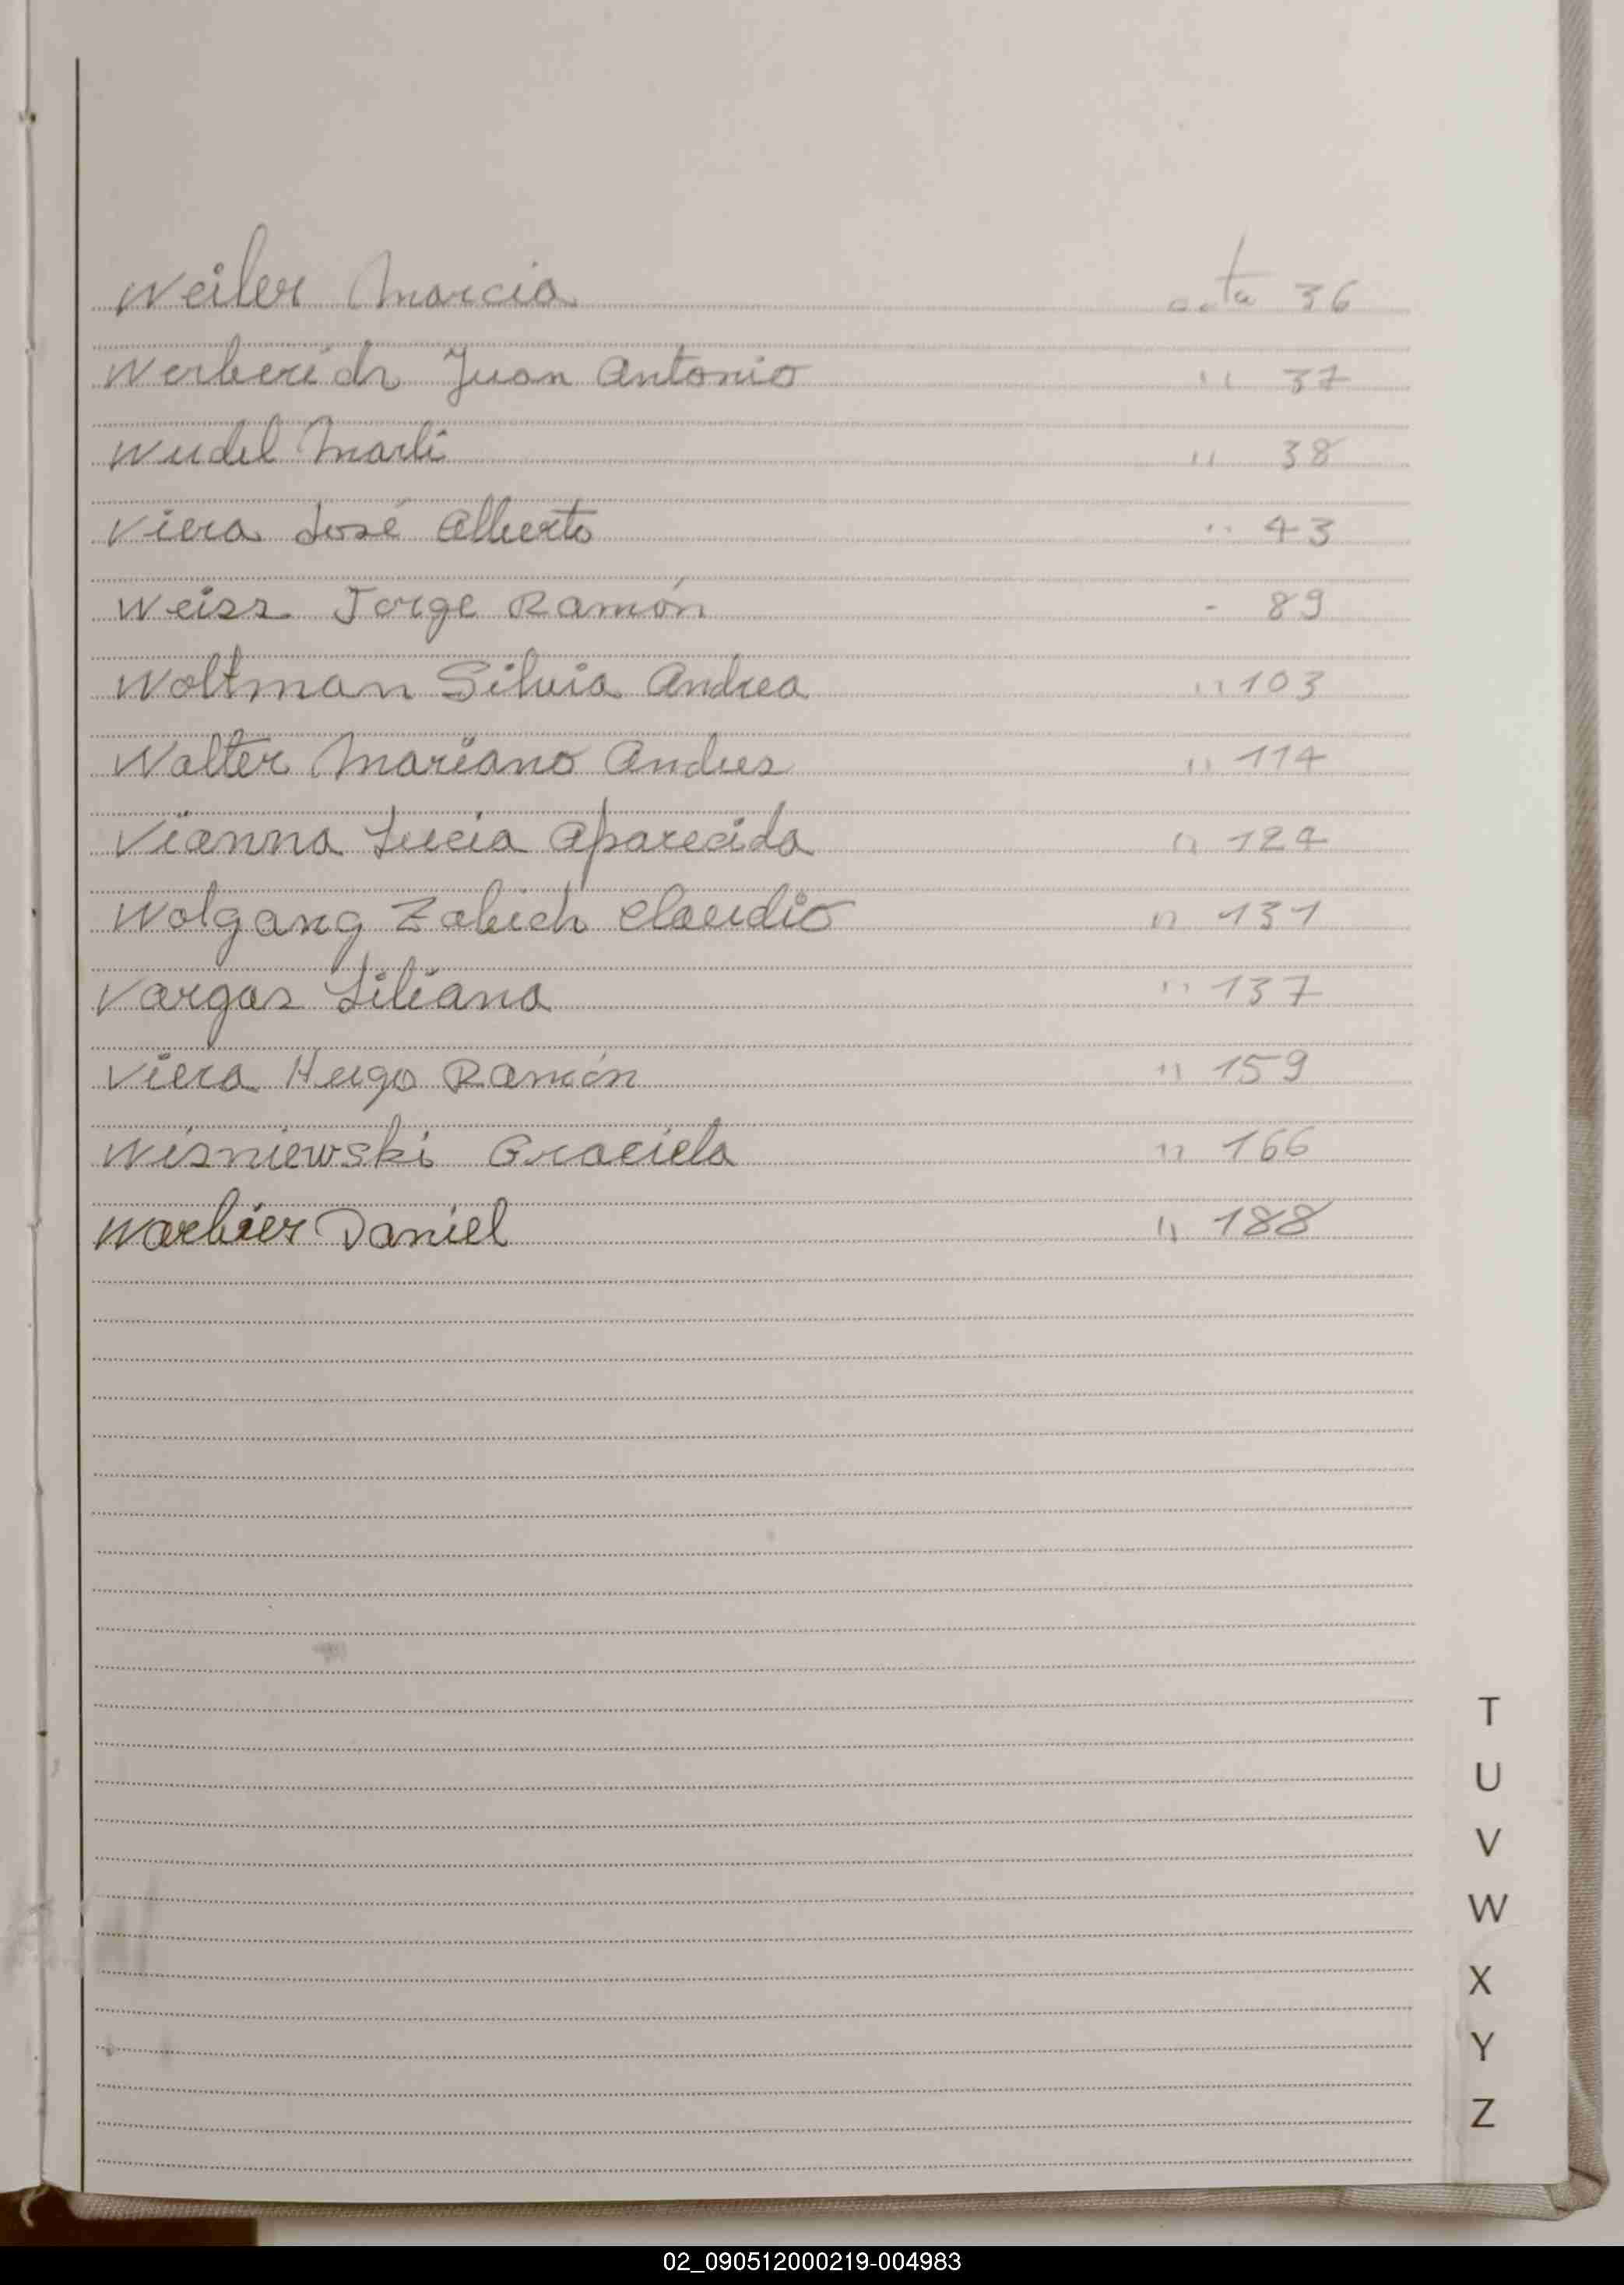 Weiler Marcia acta 36
Werberich Juan Antonio " 37
Wudel Marli " 38
Viera José Alberto " 43
Weiss Jorge Ramón - 89
Woltman Silvia Andrea " 103
Walter Mariano Andres " 114
Vianna Lucia Aparecida " 124
Wolgang Zabich Claudio " 131
Vargas Liliana " 137
Viera Hugo Ramón " 159
Wisniewski Graciela " 166
Warbier Daniel " 188
T
U
V
W
X
Y
Z
02_090512000219-004983